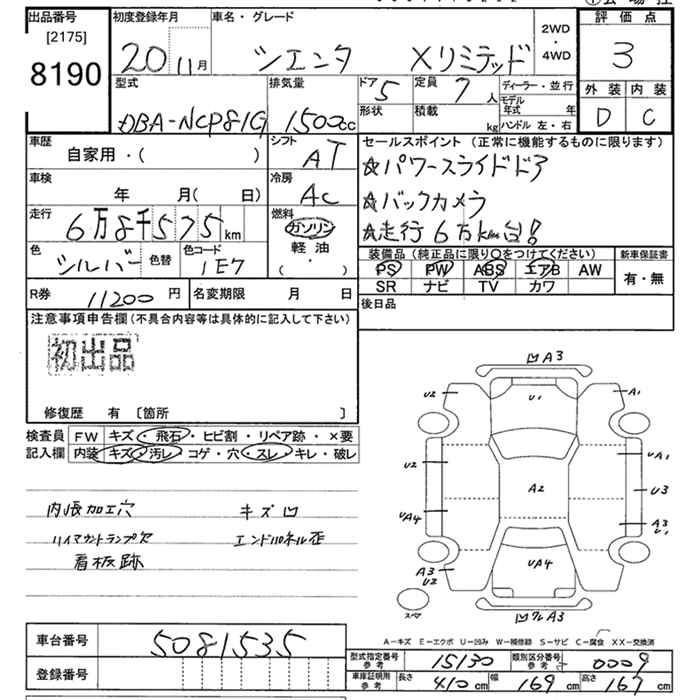 出品番号 初度登録年月 車名・グレード 評価点
[2175] 20 11月 シエンタ Xリミテッド 2WD・4WD 3
8190
型式 排気量 ドア 5 定員 7人 ディーラー・並行 外装 内装
DBA-NCP81G 1500cc 形状 積載 kg モデル年式 年 D C
ハンドル 左・右
車歴 シフト セールスポイント (正常に機能するものに限ります)
自家用・( ) AT ☆パワースライドドア
車検 冷房 ☆バックカメラ
年 月(日) AC ☆走行6万km台!
走行 燃料
6万8千575km ガソリン
色 色替 色コード 軽油 装備品 (純正品に限り○をつけてください) 新車保証書
シルバー 1E7 ・( ) PS PW ABS エアB AW 有・無
SR ナビ TV カワ
R券 11200円 名変期限 月 日 後日品
注意事項申告欄(不具合内容等は具体的に記入して下さい)
初出品
修復歴 有 [箇所 ]
検査員 FW キズ・飛石・ヒビ割・リペア跡・×要
記入欄 内装 キズ・汚レ・コゲ・穴・スレ・キレ・破レ
内張加工穴 キズ凹
ハイマウントランプ欠 エンドパネル歪
看板跡
凹A3
U2 U1 A1
U2 UA1
A2 U3
UA4 A3
U1
A3 UA4
U2
スペア 凹フレA3
A-キズ E-エクボ U-凹み W-補修跡 S-サビ C-腐食 XX-交換済
車台番号 5081535
型式指定番号 参考 15130 類別区分番号 参考 0009
登録番号 車庫証明用 参考 長さ 410cm 幅 169cm 高さ 167cm